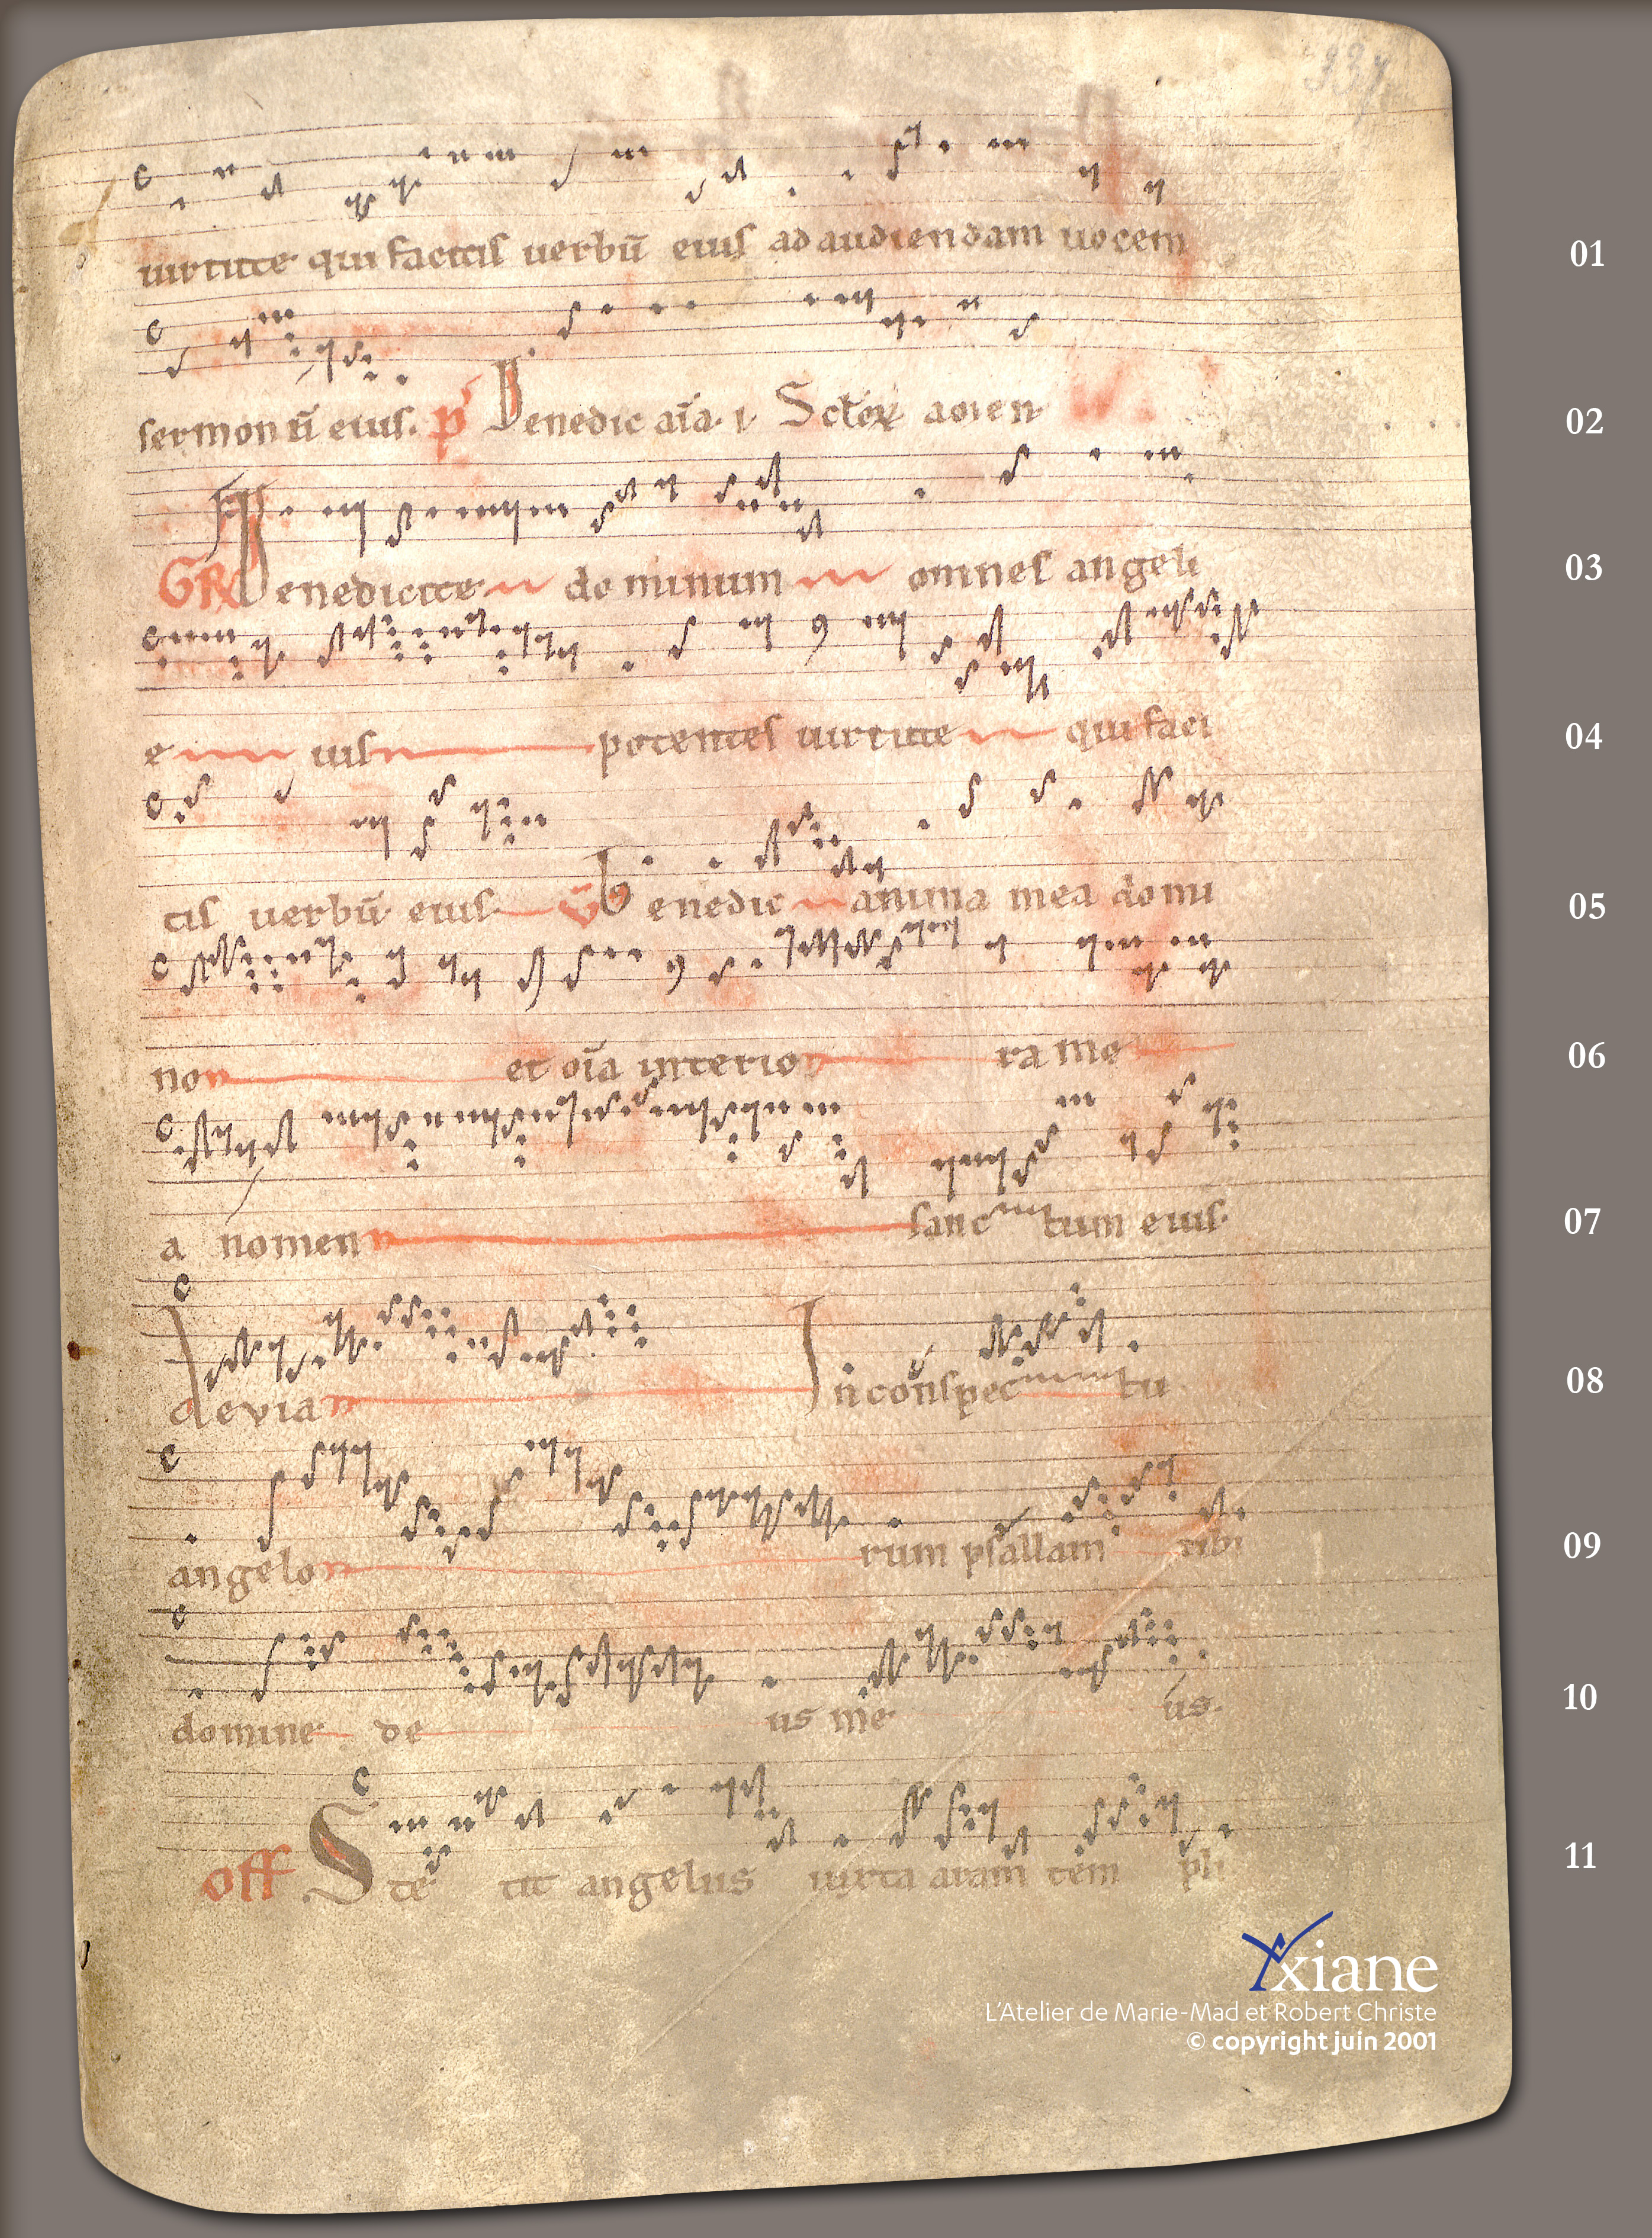 337
uirtute qui facitis uerbū eius ad audiendam uocem 01
sermonū eius. p̄ Benedic aīa. i. Sctōꝝ amen 02
GR Benedicite dominum omnes angeli 03
e ius potentes uirtute qui faci 04
tis uerbū eius v̄ Benedic anima mea domi 05
no et oīa interio ra me 06
a nomen sanc tum eius. 07
Alleuia In conspec tu 08
angelo rum psallam tibi 09
domine de us me us. 10
off Ste tit angelus iuxta aram tem pli 11
Yxiane
L'Atelier de Marie-Mad et Robert Christe
© copyright juin 2001